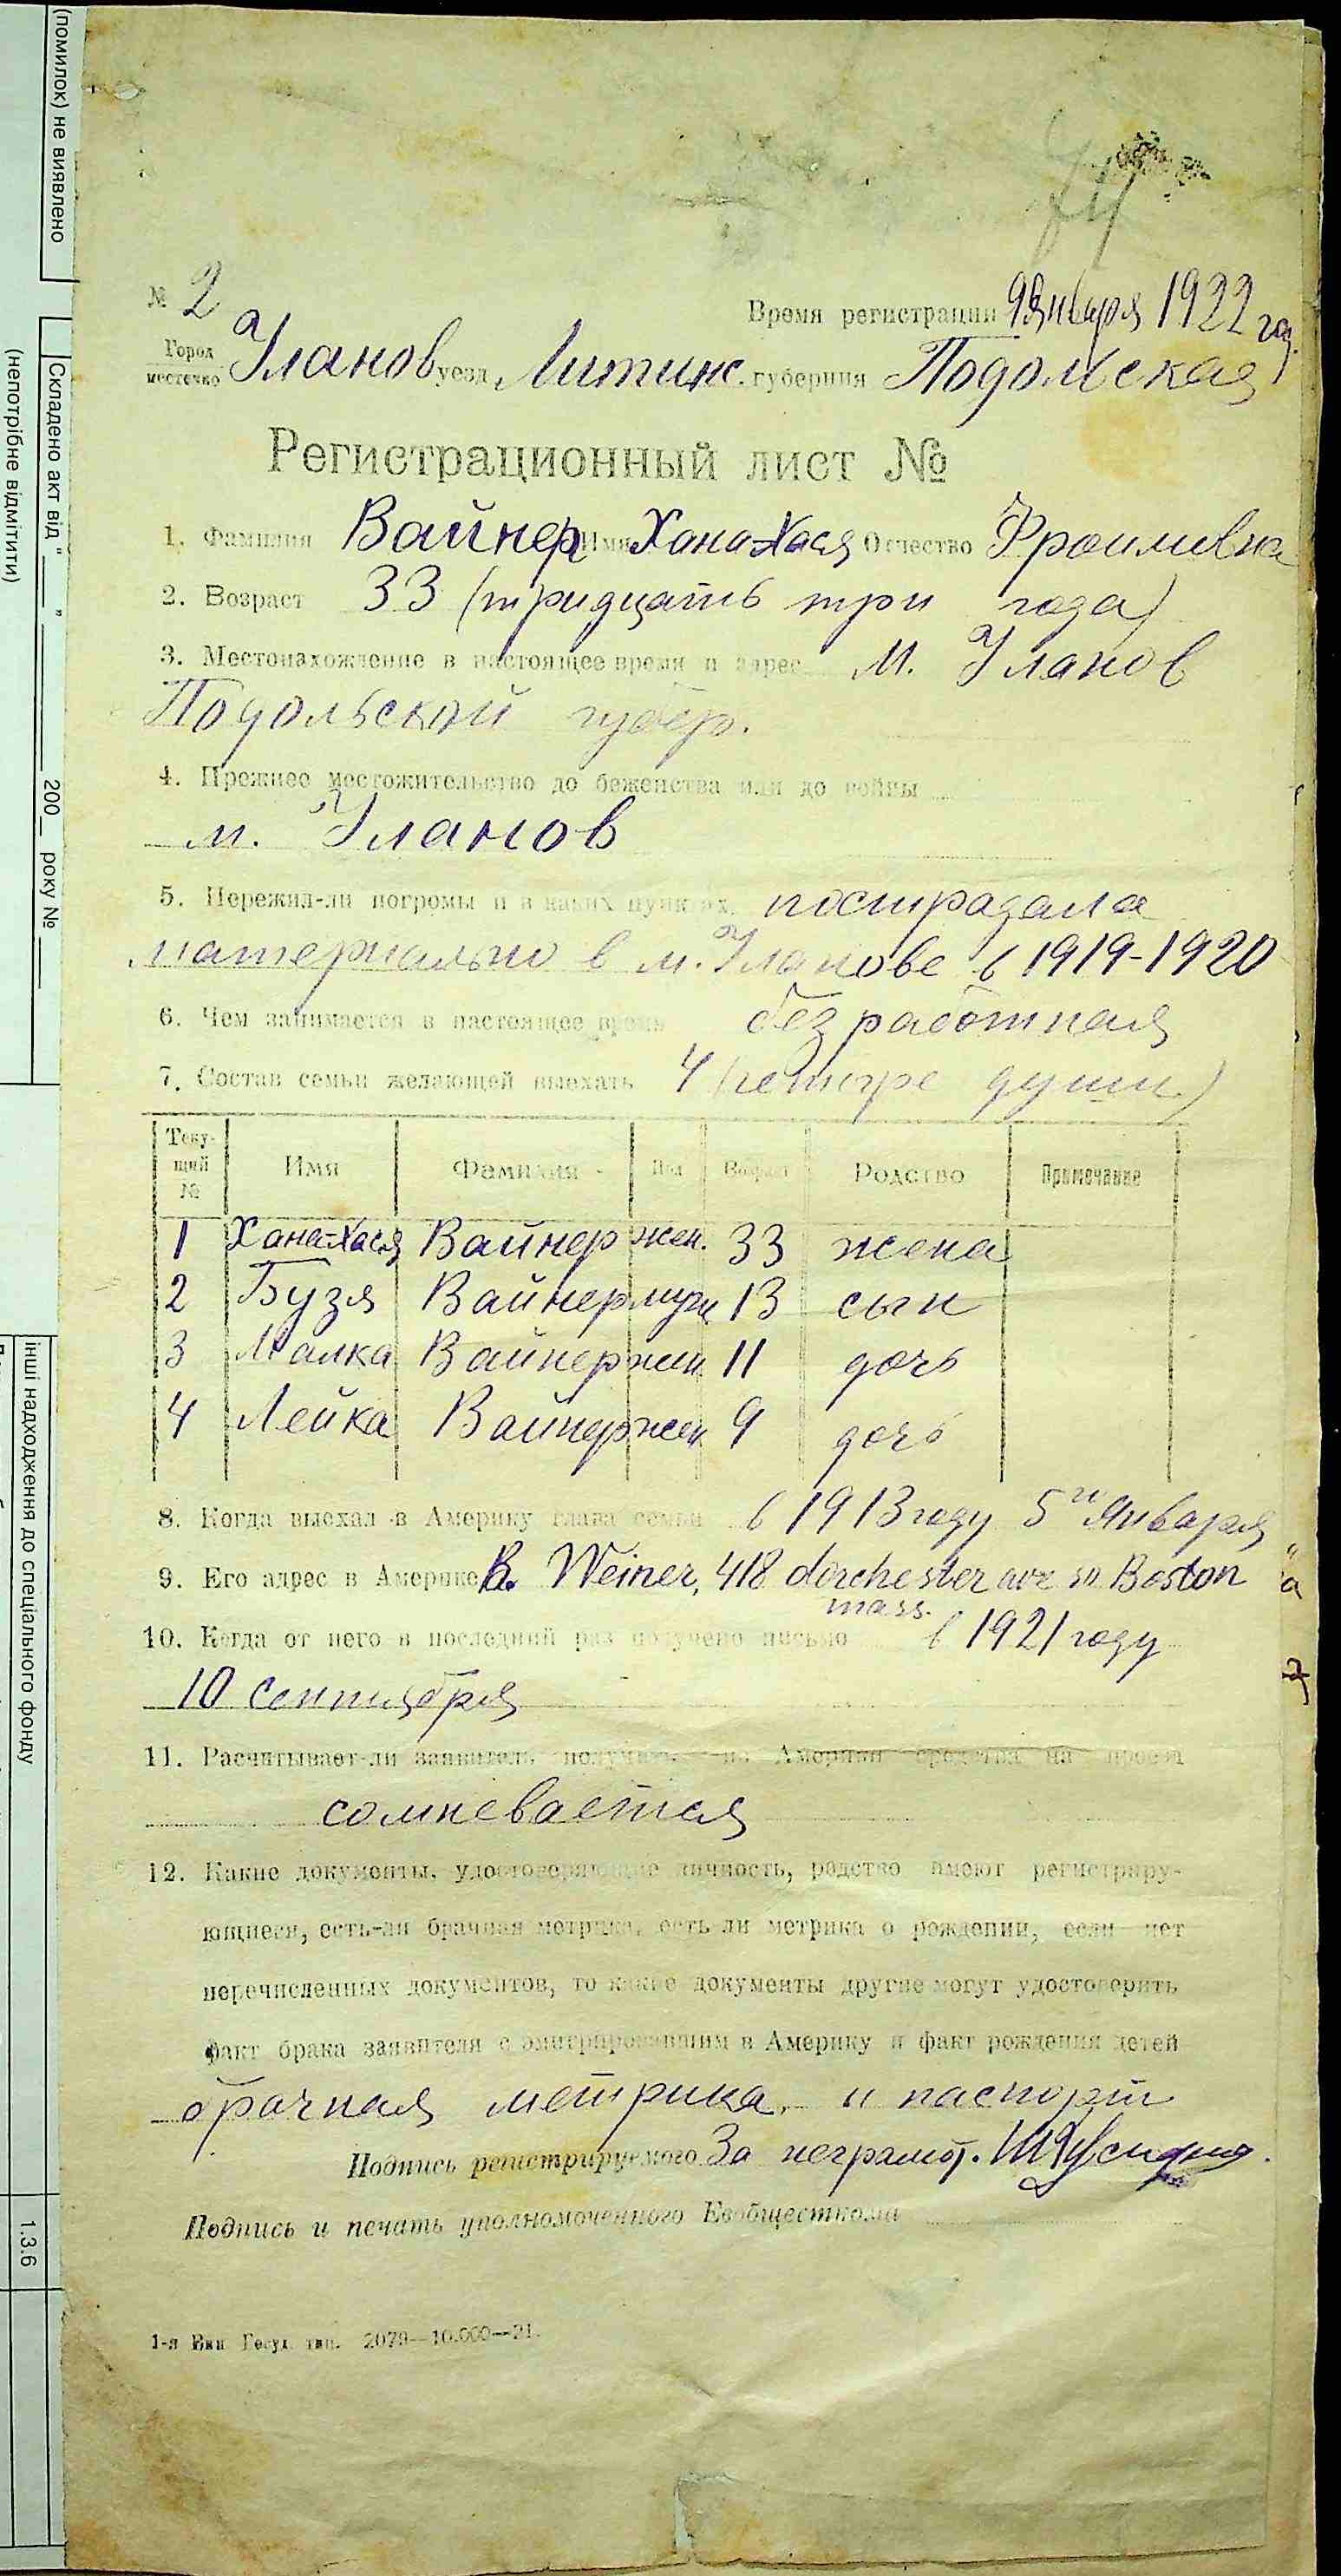 (помилок) не виявлено
(непотрібне відмітити)
Складено акт від "___" ___ 200__ року № ___
інші надходження до спеціального фонду
1.3.6
74
№ 2
Время регистрации 9 Января 1922 год.
Город
местечко Уланов уезд Литинс. губерния Подольская
Регистрационный лист №
1. Фамилия Вайнер Имя Хана-Хася Отчество Фроимовна
2. Возраст 33 (тридцать три года)
3. Местонахождение в настоящее время и адрес М. Уланов
Подольской губер.
4. Прежнее местожительство до беженства или до войны
м. Уланов
5. Пережил-ли погромы и в каких пунктах пострадала
материально в м. Уланове в 1919-1920
6. Чем занимается в настоящее время безработная
7. Состав семьи желающей выехать 4 (четыре души)
Теку-
щий
№ Имя Фамилия Пол Возраст Родство Примечание
1 Хана-Хася Вайнер жен. 33 жена
2 Бузя Вайнер муж 13 сын
3 Малка Вайнер жен 11 дочь
4 Лейка Вайнер жен 9 дочь
8. Когда выехал в Америку глава семьи в 1913 году 5го Января
9. Его адрес в Америке B. Weiner, 418 dorchester ave so Boston
mass.
10. Когда от него в последний раз получено письмо в 1921 году
10 сентября
11. Расчитывает-ли заявитель получить из Америки средства на проезд
сомневается
12. Какие документы, удостоверяющие личность, родство имеют регистриру-
ющиеся, есть-ли брачная метрика, есть ли метрика о рождении, если нет
перечисленных документов, то какие документы другие могут удостоверить
факт брака заявителя с эмигрировавшим в Америку и факт рождения детей
брачная метрика и паспорт
Подпись регистрируемого За неграмот.
Подпись и печать уполномоченного Евобщесткома
1-я Вин Госуд. тип. 2079—10.000—21.